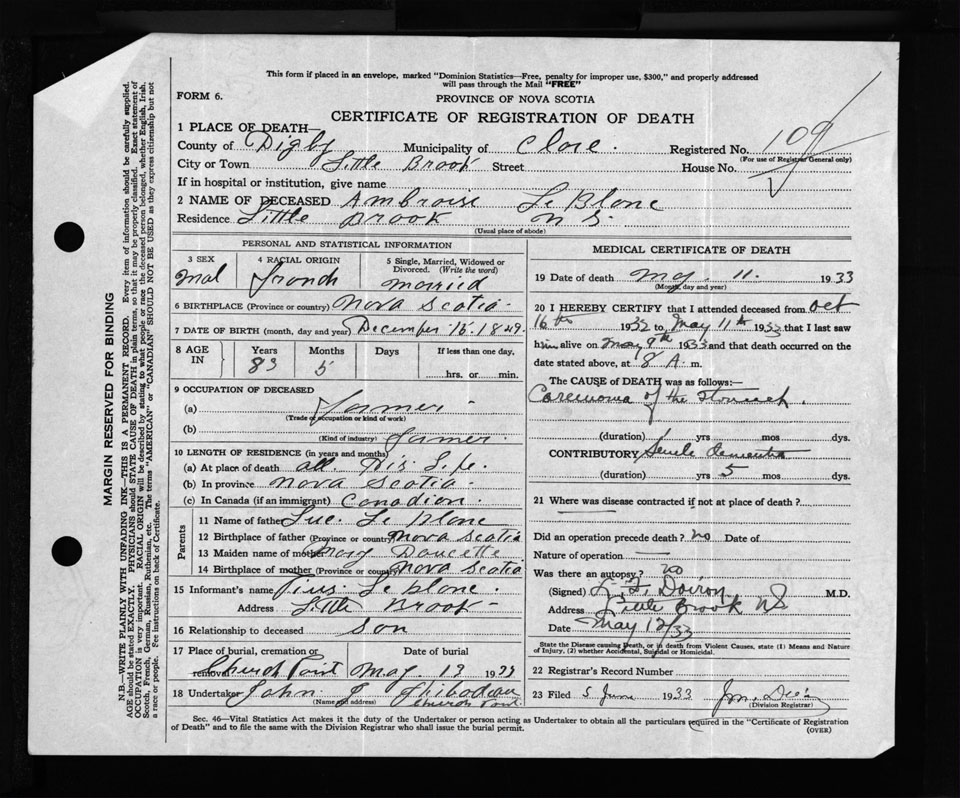 This form if placed in an envelope, marked "Dominion Statistics—Free, penalty for improper use, $300," and properly addressed
will pass through the Mail "FREE"
FORM 6.
PROVINCE OF NOVA SCOTIA
CERTIFICATE OF REGISTRATION OF DEATH
1 PLACE OF DEATH—
County of Digby Municipality of Clare. Registered No. 109
(For use of Registrar General only)
City or Town Little Brook Street House No.
If in hospital or institution, give name
2 NAME OF DECEASED Ambroise Le Blanc
Residence Little Brook N S
(Usual place of abode)
PERSONAL AND STATISTICAL INFORMATION
3 SEX 4 RACIAL ORIGIN 5 Single, Married, Widowed or
Divorced. (Write the word)
Mal French Married
6 BIRTHPLACE (Province or country) Nova Scotia
7 DATE OF BIRTH (month, day and year) December 15. 1849.
8 AGE IN Years Months Days If less than one day,
83 5 hrs. or min.
9 OCCUPATION OF DECEASED
(a) Farmer
(Trade or occupation or kind of work)
(b) Farmer.
(Kind of industry)
10 LENGTH OF RESIDENCE (in years and months)
(a) At place of death all His Life.
(b) In province Nova Scotia
(c) In Canada (if an immigrant) Canadian.
Parents
11 Name of father Luc. Le Blanc
12 Birthplace of father (Province or country) Nova Scotia
13 Maiden name of mother Doucette
14 Birthplace of mother (Province or country) Nova Scotia
15 Informant's name Pius Le blanc.
Address Little Brook
16 Relationship to deceased son
17 Place of burial, cremation or removal Date of burial
Church Point May 13 1933
18 Undertaker John Thibodeau
(Name and address) Church Point
MEDICAL CERTIFICATE OF DEATH
19 Date of death May 11. 1933
(Month, day and year)
20 I HEREBY CERTIFY that I attended deceased from Oct
16th 1932 to May 11th 1933 that I last saw
him alive on May 9th 1933 and that death occurred on the
date stated above, at 8 A. m.
The CAUSE of DEATH was as follows:—
Carcinoma of the stomach.
(duration) 1 yrs mos dys.
CONTRIBUTORY Senile dementia
(duration) 5 yrs mos dys.
21 Where was disease contracted if not at place of death?
Did an operation precede death? no Date of
Nature of operation —
Was there an autopsy? no
(Signed) Doiron M.D.
Address Little Brook NS
Date May 12/33
State the Disease causing Death, or in death from Violent Causes, state (1) Means and Nature
of Injury, (2) whether Accidental, Suicidal or Homicidal.
22 Registrar's Record Number
23 Filed 5 June 1933
(Division Registrar)
Sec. 46—Vital Statistics Act makes it the duty of the Undertaker or person acting as Undertaker to obtain all the particulars required in the "Certificate of Registration
of Death" and to file the same with the Division Registrar who shall issue the burial permit.
(OVER)
MARGIN RESERVED FOR BINDING
N.B.—WRITE PLAINLY WITH UNFADING INK—THIS IS A PERMANENT RECORD. Every item of information should be carefully supplied.
AGE should be stated EXACTLY. PHYSICIANS should STATE CAUSE OF DEATH in plain terms, so that it may be properly classified. Exact statement of
OCCUPATION is very important. RACIAL ORIGIN will be described by stating to what people or race the deceased person belonged, whether English, Irish,
Scotch, French, German, Russian, Ruthenian, etc. The terms "AMERICAN" or "CANADIAN" SHOULD NOT BE USED as they express citizenship but not
a race or people. Fee instructions on back of Certificate.